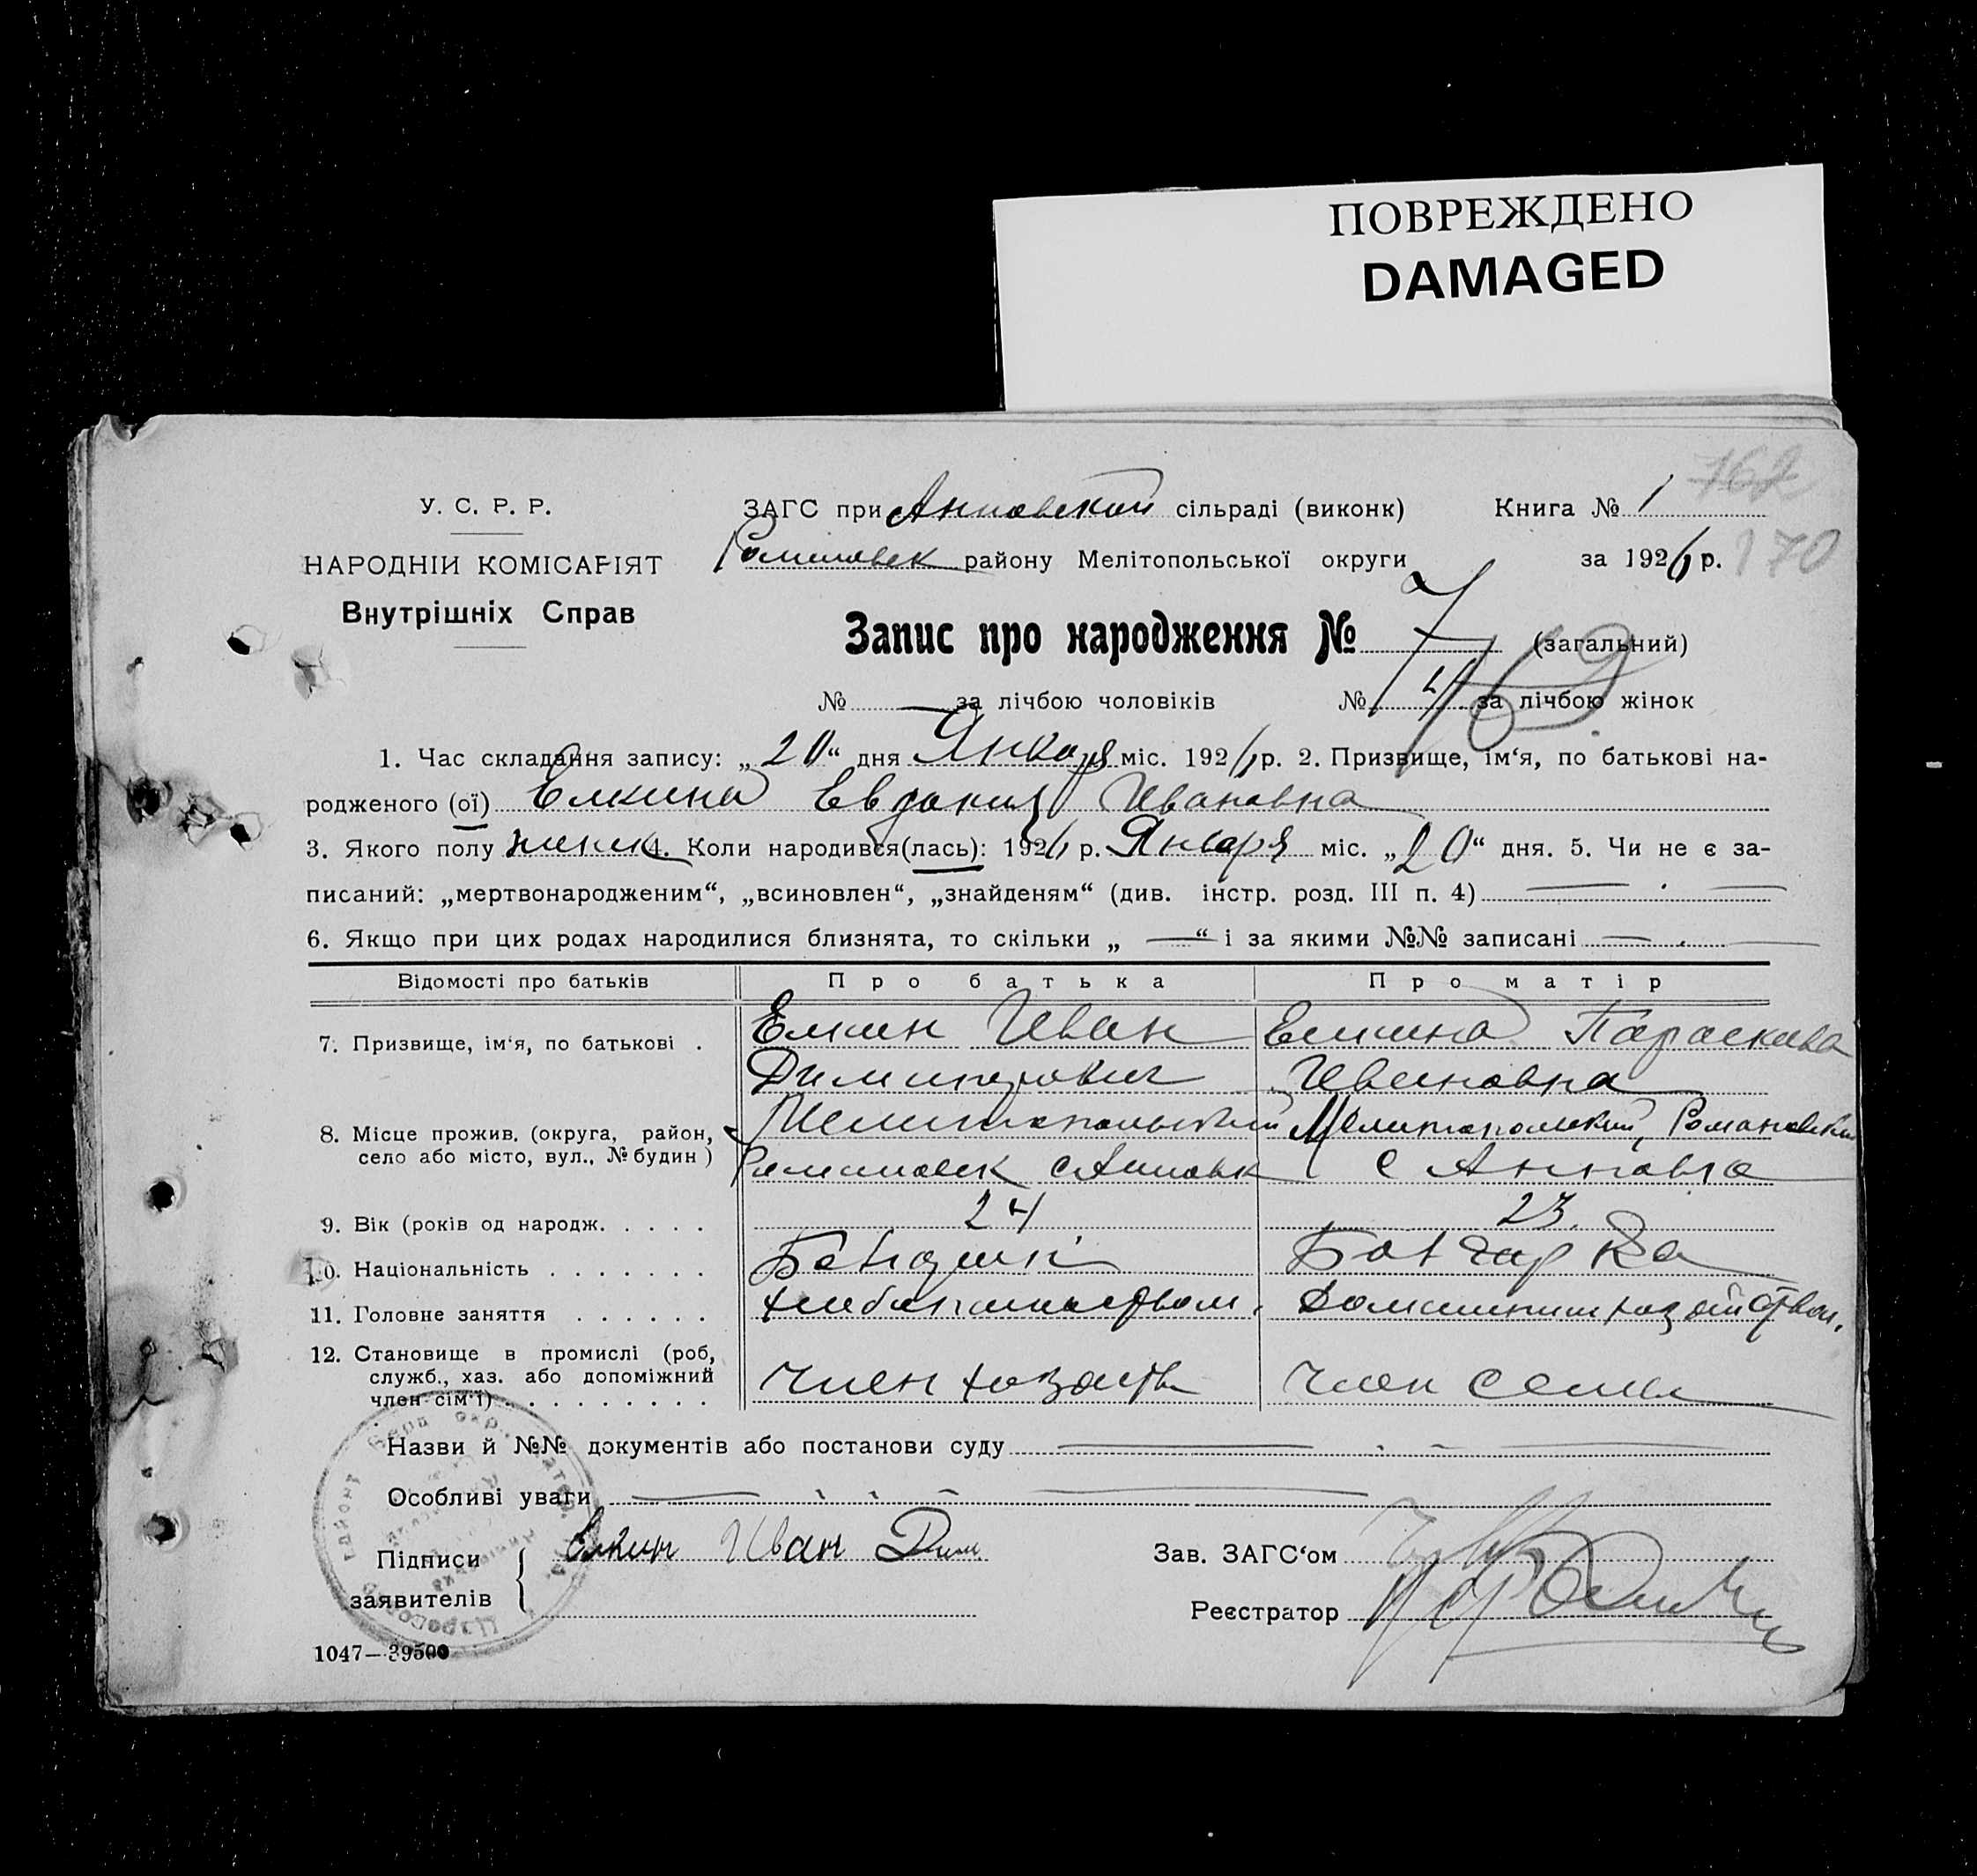 ПОВРЕЖДЕНО
DAMAGED
762
170
У. С. Р. Р.
НАРОДНІЙ КОМІСАРІЯТ
Внутрішніх Справ
ЗАГС при Анновской сільраді (виконк)
Книга № 1
району Мелітопольської округи
за 1926 р.
Запис про народження № 7 (загальний)
№ — за лічбою чоловіків № 4 за лічбою жінок
1. Час складання запису: „20“ дня Января міс. 1926 р. 2. Призвище, ім‘я, по батькові на-
родженого (ої) Елкина Евдокия Ивановна
3. Якого полу женск 4. Коли народився(лась): 1926 р. Января міс. „20“ дня. 5. Чи не є за-
писаний: „мертвонародженим“, „всиновлен“, „знайденям“ (див. інстр. розд. III п. 4) — . —
6. Якщо при цих родах народилися близнята, то скільки „ —“ і за якими №№ записані — . —
Відомості про батьків Про батька Про матір
7. Призвище, ім‘я, по батькові . Елкин Иван Елкина Параскива
Димитрович Ивановна
8. Місце прожив. (округа, район, Мелитопольский Мелитопольский, Романовский
село або місто, вул., № будин) с Анновк с Анновка
9. Вік (років од народж. . . . . 24 23.
10. Національність . . . . . . . Болгарка
11. Головне заняття . . . . . . хлебопашеством. Домашним хозяйством.
12. Становище в промислі (роб,
служб., хаз. або допоміжний
член сім‘ї) . . . . . . . . . Член хозяйства Член семьи
Назви й №№ документів або постанови суду — . - —
Особливі уваги —
Підписи
заявителів
Елкин Иван Дим
Зав. ЗАГС‘ом
Реєстратор
1047—39500